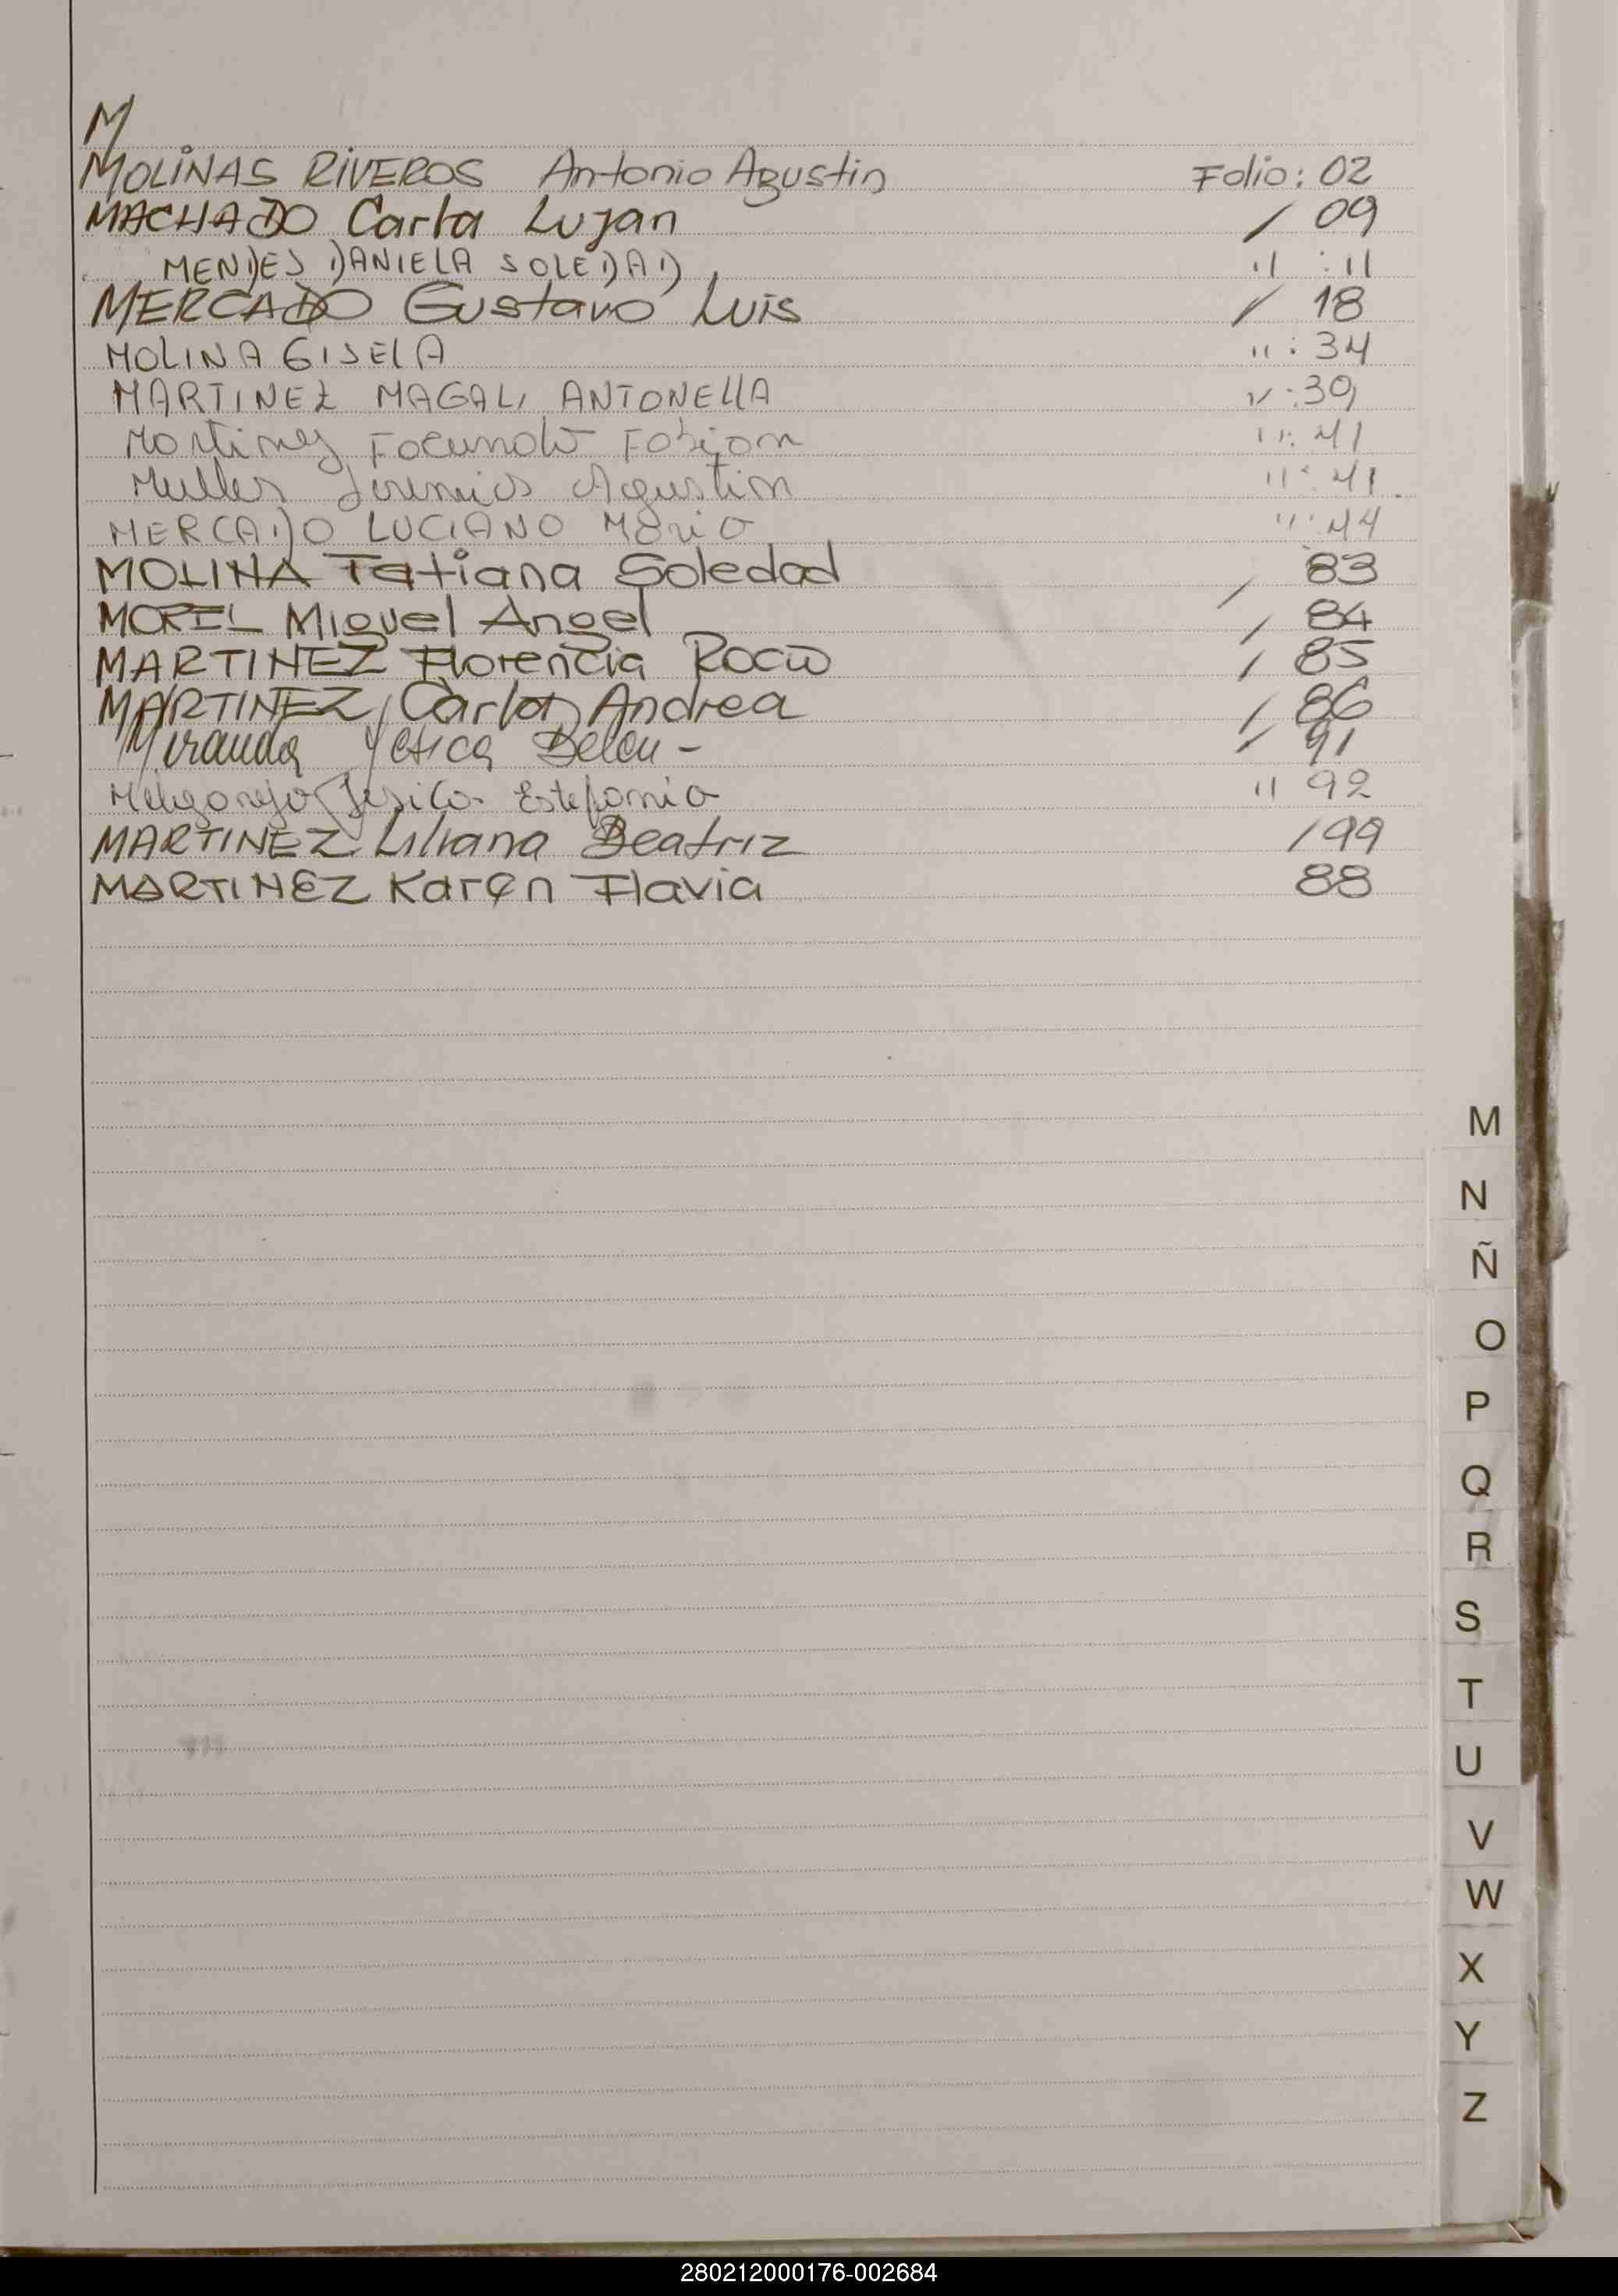 M
MOLINAS RIVEROS Antonio Agustin Folio: 02
MACHADO Carla Lujan / 09
MENDES DANIELA SOLEDAD 11 : 11
MERCADO Gustavo Luis / 18
MOLINA GISELA 11 : 34
MARTINEZ MAGALI ANTONELLA 11 : 30
Martinez Facundo Fabian 11 : 41
Muller Jeremias Agustin 11 : 41.
MERCADO LUCIANO Mario 11 : 44
MOLINA Tatiana Soledad / 83
MOREL Miguel Angel / 84
MARTINEZ Florencia Rocio / 85
MARTINEZ Carla Andrea / 86
Miranda Yesica Belen - / 91
Melgarejo Jesica Estefania 11 92
MARTINEZ Liliana Beatriz / 99
MARTINEZ Karen Flavia 88
M
N
Ñ
O
P
Q
R
S
T
U
V
W
X
Y
Z
280212000176-002684